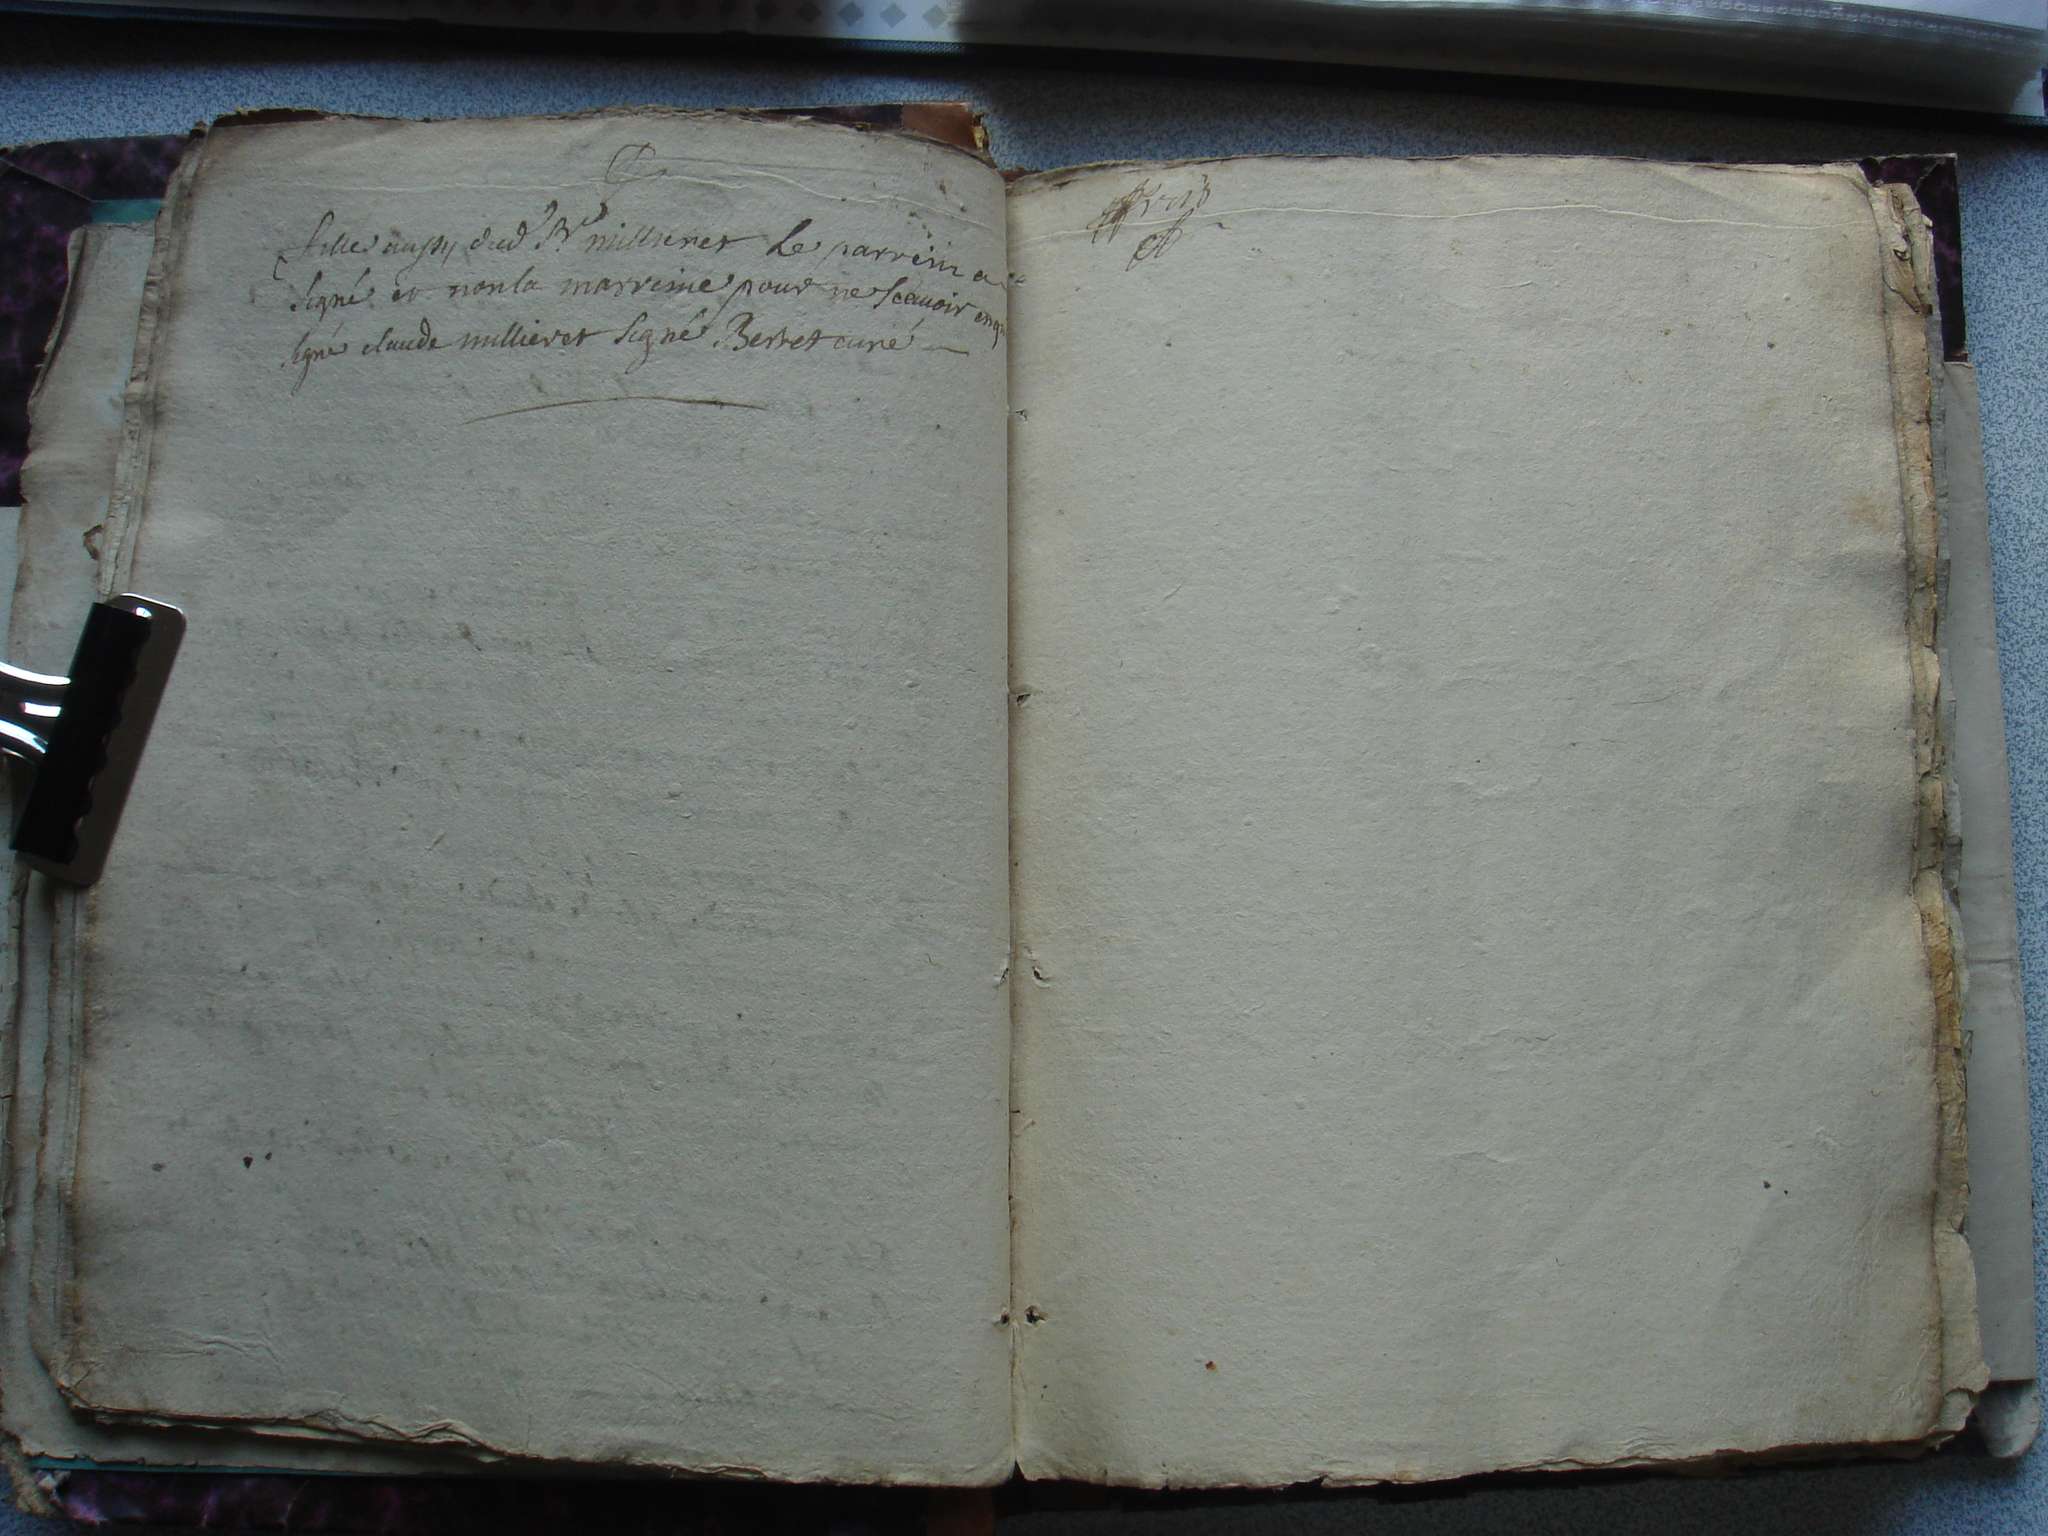 fille aussy dud Sr millieret Le parrein a
signé et non la marreine pour ne scavoir
signé claude millieret signé Berret curé